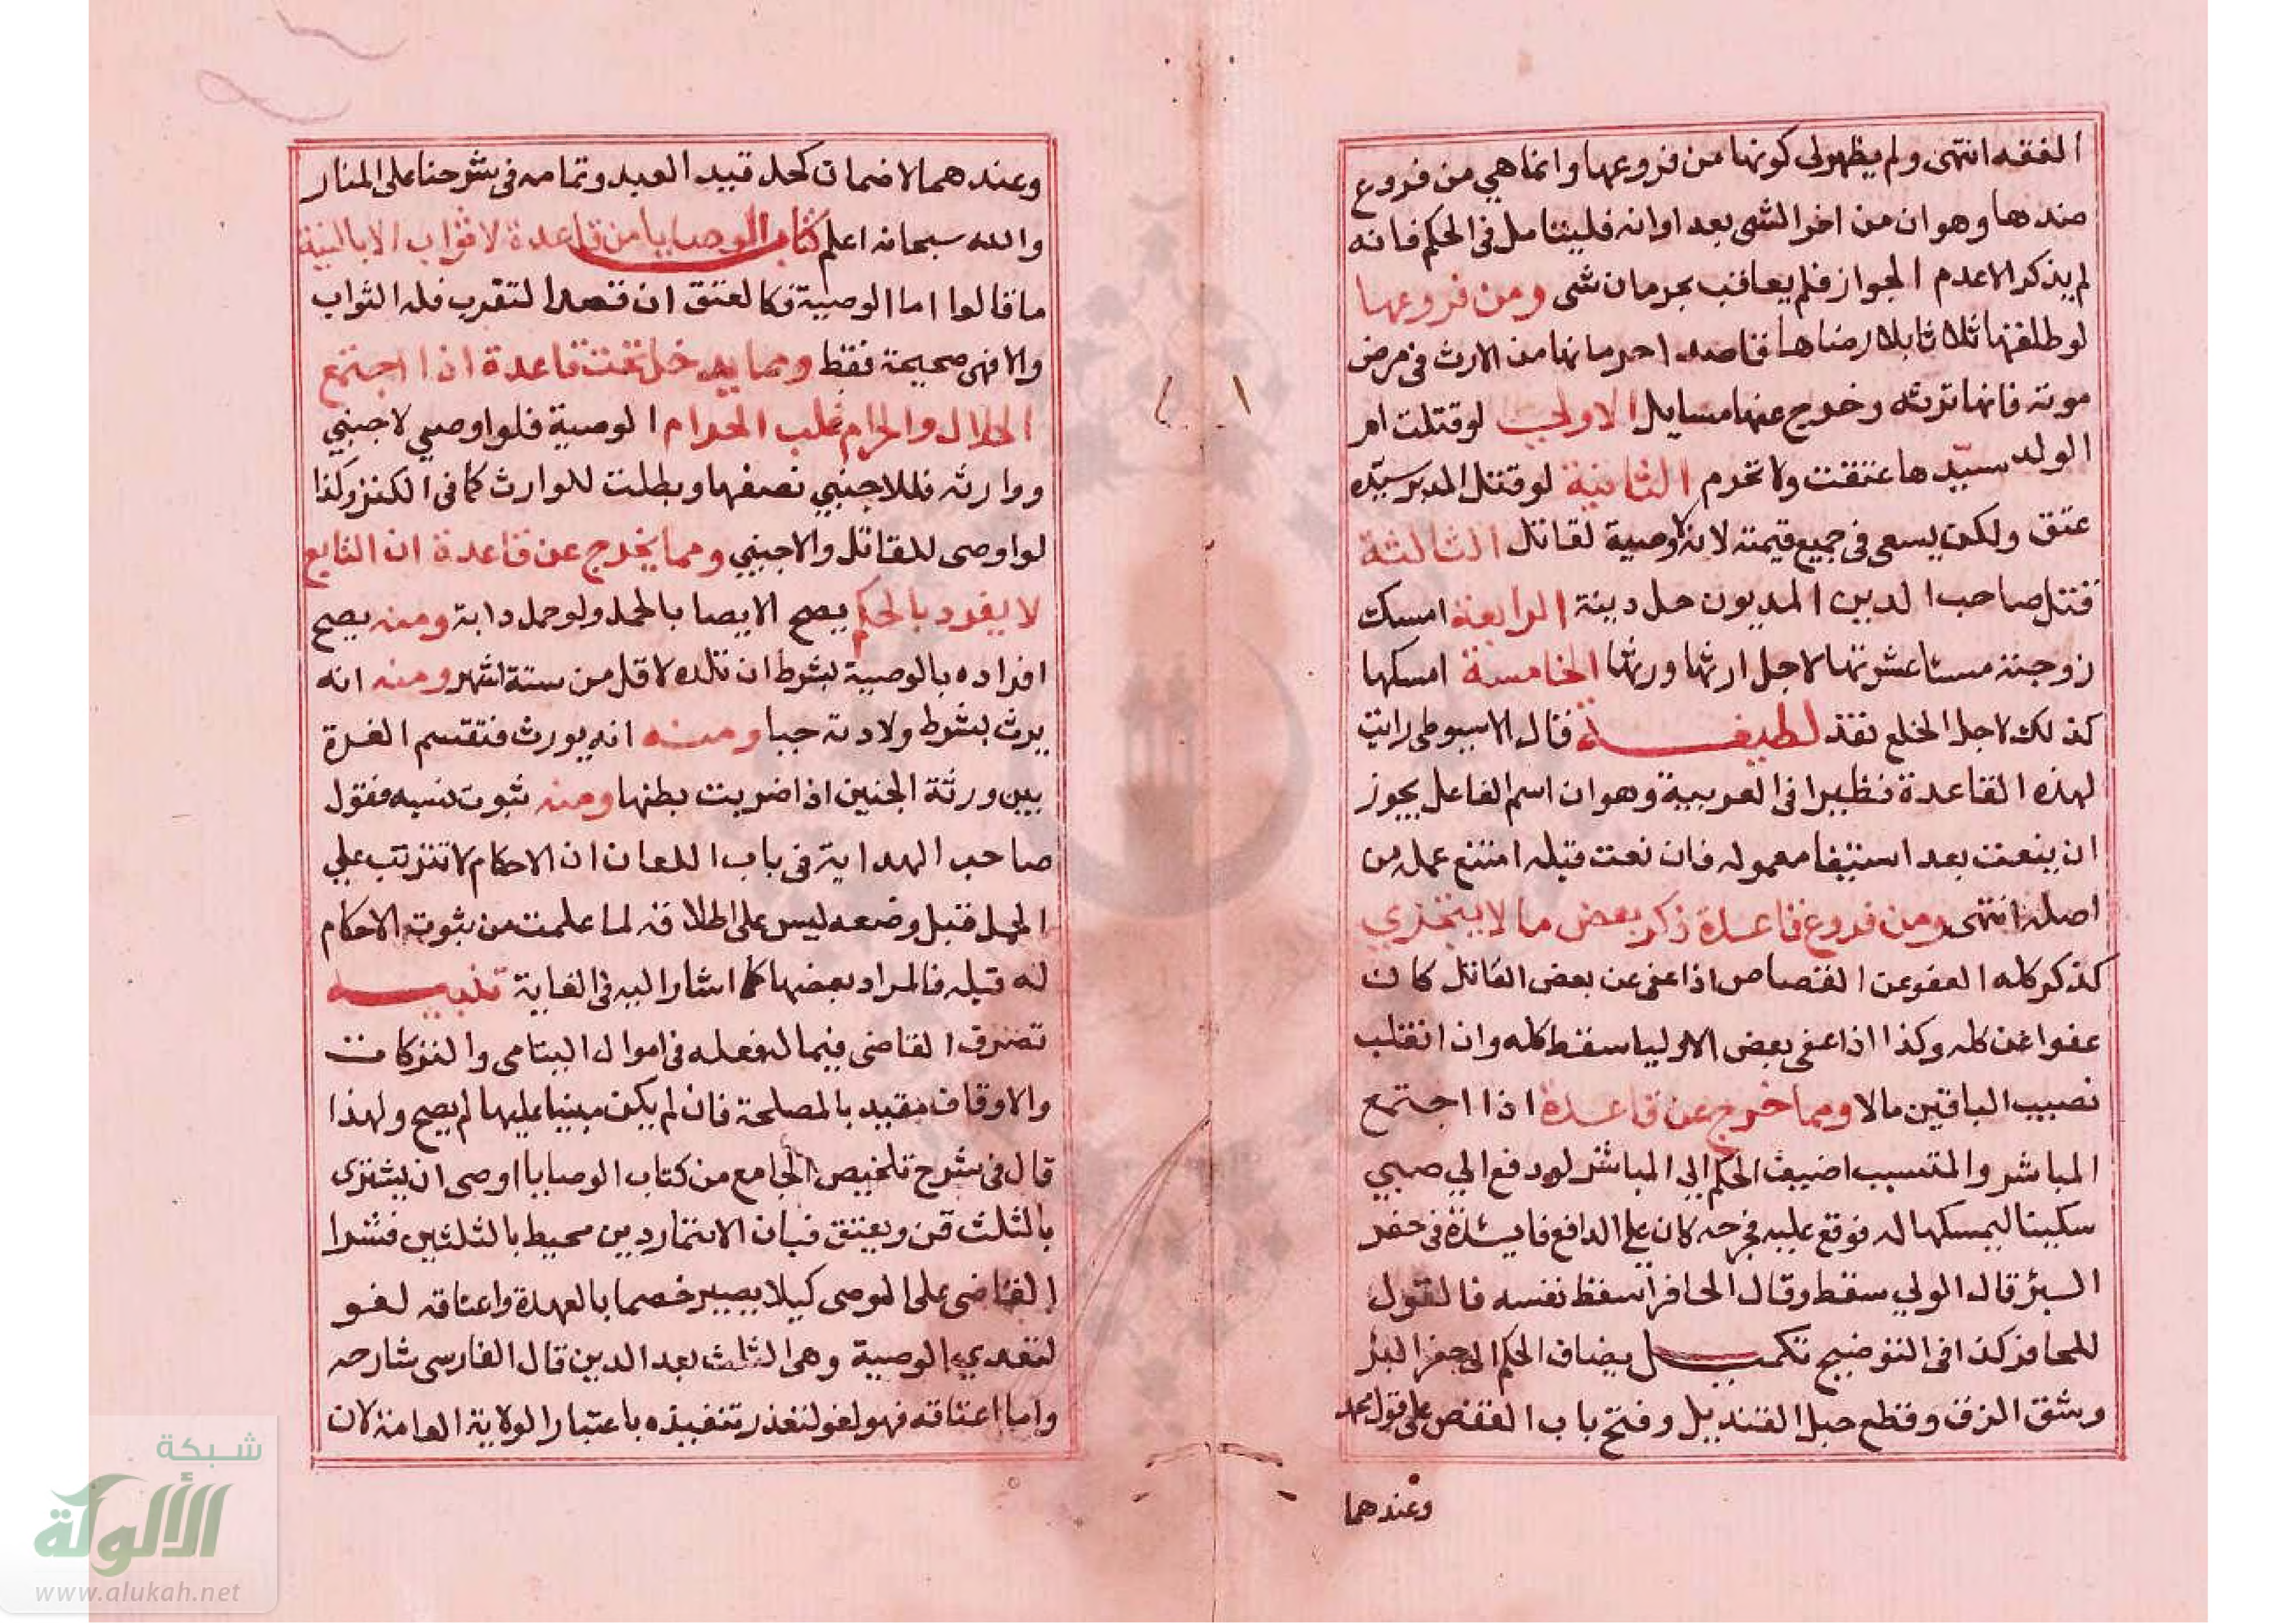 الفقه انتهى ولم يظهر لى كونها من فروعها وانما هي من فروع
ضدها وهو ان من اخر الشى بعد اوانه فليتامل فى الحكم فانه
لم يذكر الا عدم الجواز فلم يعاقب بحرمان شى ومن فروعها
لو طلقها ثلاثا بلا رضاها قاصدا حرمانها من الارث فى مرض
موته فانها ترثه وخرج عنها مسايل الاولى لو قتلت ام
الولد سيّدها عتقت ولا تحرم الثانية لو قتل المدبر سيّده
عتق ولكن يسعى فى جميع قيمته لانه لاوصية لقاتل الثالثة
قتل صاحب الدين المديون حل دينة الرابعة امسك
زوجته مسيا عشرتها لاجل ارثها ورثها الخامسة امسكها
كذلك لاجل الخلع نفذ لطيفة قال الاسيوطى رايت
لهذه القاعدة نظيرا فى العربية وهو ان اسم الفاعل يجوز
ان ينعت بعد استيفا معموله فان نعت قبله امتنع عمله من
اصله انتهى ومن فروع قاعدة ذكر بعض ما لا يتجزي
كذكر كله العفو عن القصاص اذا عفى عن بعض القاتل كان
عفوا عن كله وكذا اذا عفى بعض الاوليا سقط كله وان انقلب
نصيب الباقين مالا ومما خرج عن قاعدة اذا اجتمع
المباشر والمتسبب اضيف الحكم الى المباشر لو دفع الي صبي
سكينا ليمسكها له فوقع عليه فجرحه كان على الدافع فايدة فى حفر
البئر قال الولي سقط وقال الحافر اسقط نفسه فالقول
للحافر كذا فى التوضيح تكميل يضاف الحكم الى حفر البئر
وشق الزق وقطع حبل القنديل وفتح باب القفص على قول محمد
وعندهما
وعندهما لا ضمان كحل قيد العبد وتمامه فى شرحنا على المنار
والله سبحانه اعلم كتاب الوصايا من قاعدة لا ثواب الا بالنية
ما قالوا اما الوصية فكالعتق ان قصد التقرب فله الثواب
والا فهى صحيحة فقط ومما يدخل تحت قاعدة اذا اجتمع
الحلال والحرام غلب الحرام الوصية فلو اوصي لاجنبي
ووارثه فللاجنبي نصفها وبطلت للوارث كما فى الكنز وكذا
لو اوصى للقاتل والاجنبي ومما يخرج عن قاعدة ان التابع
لا يفرد بالحكم يصح الايصا بالحمل ولو حمل دابة ومنه يصح
افراده بالوصية بشرط ان تلده لاقل من ستة اشهر ومنه انه
يرث بشرط ولادته حيا ومنه انه يورث فتقسم الغرة
بين ورثة الجنين اذا ضربت بطنها ومنه ثبوت نسبه فقول
صاحب الهداية فى باب اللعان ان الاحكام لا تترتب علي
الحمل قبل وضعه ليس على اطلاقه لما علمت من ثبوت الاحكام
له قبله فالمراد بعضها كما اشار اليه فى الغاية تنبيه
تصرف القاضى فيما له فعله فى اموال اليتامى والتركات
والاوقاف مقيد بالمصلحة فان لم يكن مبنيا عليها لم يصح ولهذا
قال فى شرح تلخيص الجامع من كتاب الوصايا اوصى ان يشترى
بالثلث قن ويعتق فبان الائتمار دين محيط بالثلثين فشرا
القاضى على الموصى كيلا يصير خصما بالعهدة واعتاقه لغو
لتعدي الوصية وهى الثلث بعد الدين قال الفارسى شارحه
واما اعتاقه فهو لغو لتعذر تنفيذه باعتبار الولاية العامة لان
شبكة
الألوكة
www.alukah.net